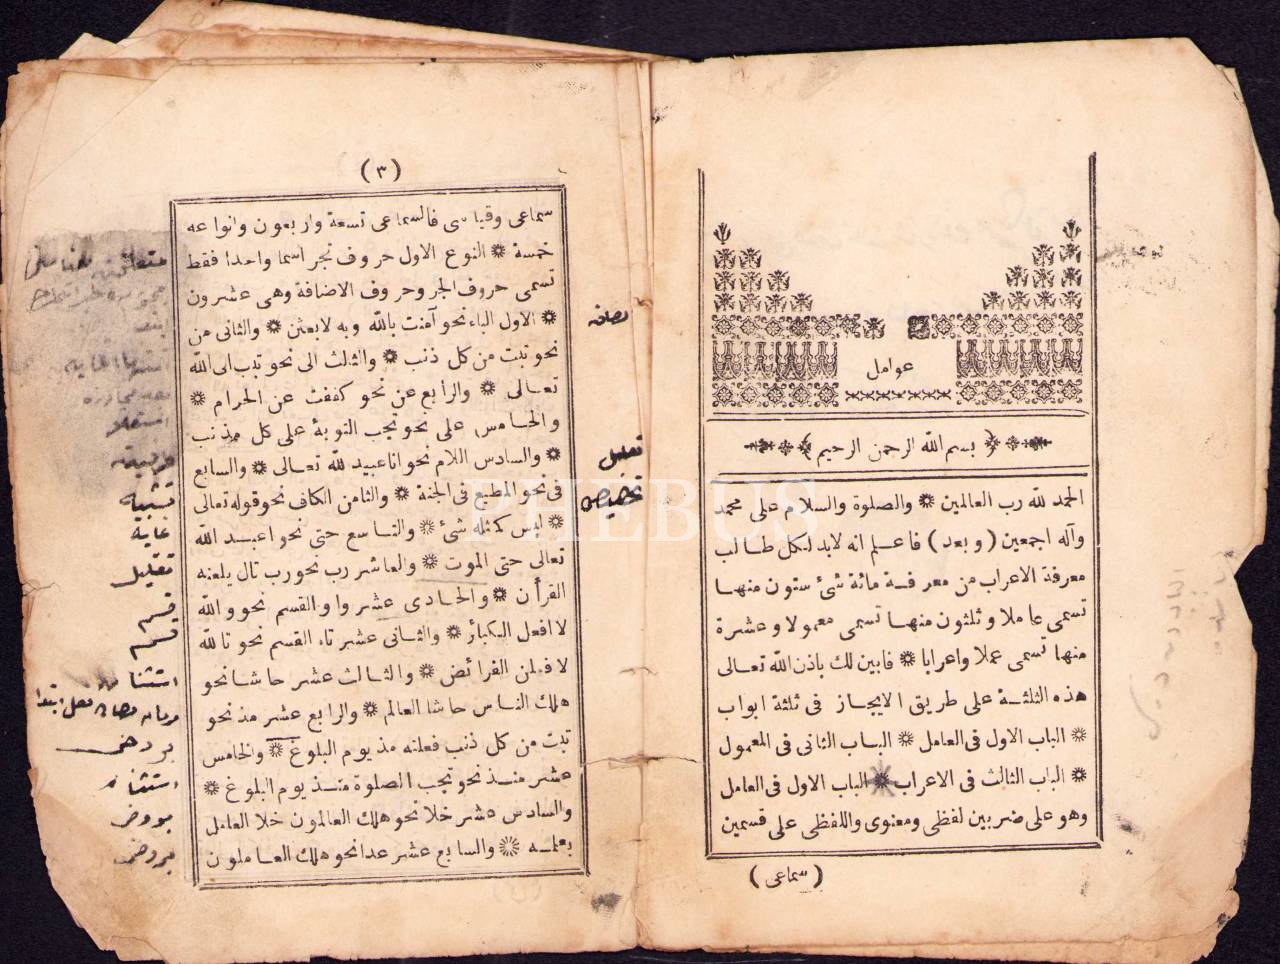 عوامل
بسم الله الرحمن الرحيم
الحمد لله رب العالمين * والصلوة والسلام على محمد
وآله اجمعين (وبعد) فاعلم انه لابد لكل طالب
معرفة الاعراب من معرفة مائة شئ ستون منها
تسمى عاملا وثلثون منها تسمى معمولا وعشرة
منها تسمى عملا واعرابا * فابين لك باذن الله تعالى
هذه الثلثة على طريق الايجاز فى ثلثة ابواب
* الباب الاول فى العامل * الباب الثانى فى المعمول
* الباب الثالث فى الاعراب * الباب الاول فى العامل
وهو على ضربين لفظى ومعنوى واللفظى على قسمين
(سماعى)
(٣)
سماعى وقياسى فالسماعى تسعة واربعون وانواعه
خمسة * النوع الاول حروف تجر اسما واحدا فقط
تسمى حروف الجر وحروف الاضافة وهى عشرون
* الاول الباء نحو آمنت بالله وبه لابعثن * والثانى من
نحو تبت من كل ذنب * والثالث الى نحو تبت الى الله
تعالى * والرابع عن نحو كففت عن الحرام *
والخامس على نحو تجب التوبة على كل مذنب
* والسادس اللام نحو انا عبيد لله تعالى * والسابع
فى نحو المطيع فى الجنة * والثامن الكاف نحو قوله تعالى
* ليس كمثله شئ * والتاسع حتى نحو اعبد الله
تعالى حتى الموت * والعاشر رب نحو رب تال يلعنه
القرأن * والحادى عشر واو القسم نحو والله
لا افعل الكبائر * والثانى عشر تاء القسم نحو تالله
لافعلن الفرائض * والثالث عشر حاشا نحو
هلك الناس حاشا العالم * والرابع عشر مذ نحو
تبت من كل ذنب فعلته مذ يوم البلوغ * والخامس
عشر منذ نحو تجب الصلوة منذ يوم البلوغ *
والسادس عشر خلا نحو هلك العالمون خلا العامل
بعلمه * والسابع عشر عدا نحو هلك العاملون
تعليل
تخصيص
تشبيه
غاية
تقليل
قسم
قسم
استثنا
استثنا
PHEBUS